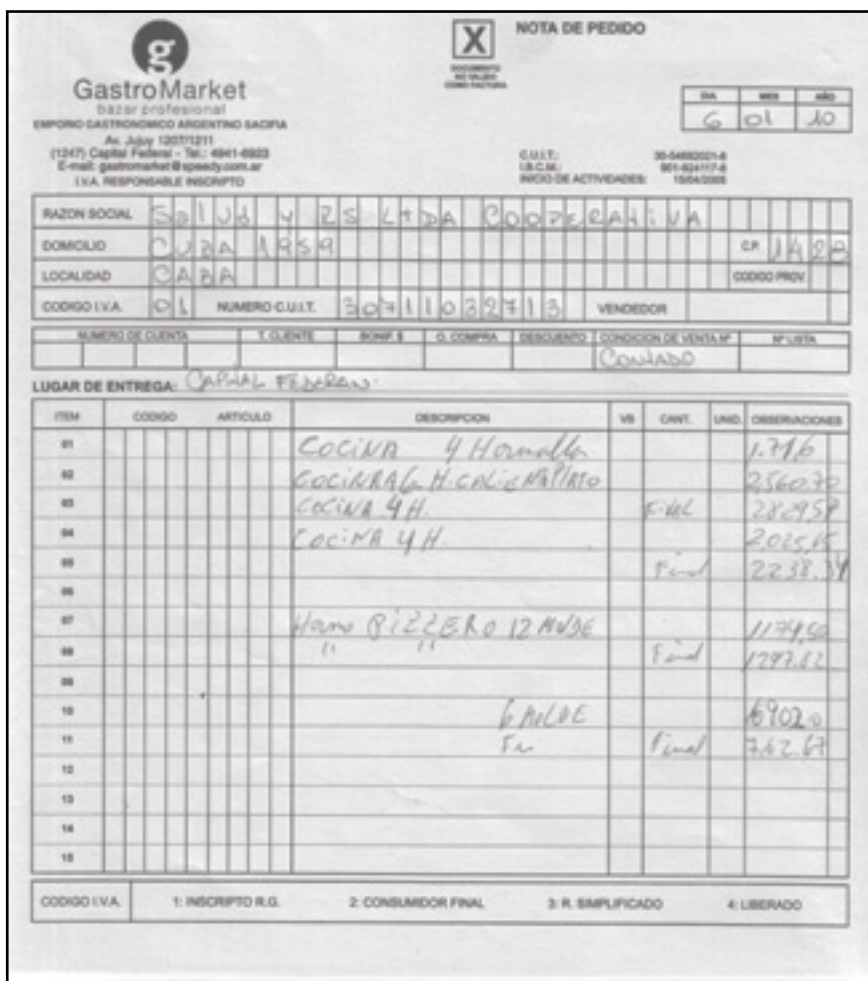 g
GastroMarket
bazar profesional
EMPORIO GASTRONOMICO ARGENTINO SACIFIA
Av. Jujuy 1207/1211
(1247) Capital Federal - Tel.: 4941-6923
E-mail: gastromarket@speedy.com.ar
I.V.A. RESPONSABLE INSCRIPTO
X
DOCUMENTO
NO VALIDO
COMO FACTURA
NOTA DE PEDIDO
DIA MES AÑO
6 01 10
C.U.I.T.: 30-54692021-8
I.B.C.M.: 901-924117-8
INICIO DE ACTIVIDADES: 15/04/2005
RAZON SOCIAL Salud y RS LtDA COOPERAtiVA
DOMICILIO CUBA 1959 C.P. 1428
LOCALIDAD CABA CODIGO PROV.
CODIGO I.V.A. 01 NUMERO C.U.I.T. 30711032713 VENDEDOR
NUMERO DE CUENTA T. CLIENTE BONIF. $ O. COMPRA DESCUENTO CONDICION DE VENTA Nº Nº LISTA
CONTADO
LUGAR DE ENTREGA: CAPITAL FEDERAL.
ITEM CODIGO ARTICULO DESCRIPCION VB CANT. UNID. OBSERVACIONES
01 COCINA 4 Hornalla 1.716
02 COCINA 6 H. CALIENTAPLATO 2560.70
03 COCINA 4 H. Final 2829.57
04 COCINA 4 H. 2.025,65
05 Final 2238.34
06
07 Horno PIZZERO 12 MOLDE 1174,50
08 " " Final 1297.82
09
10 6 MOLDE 6902.0
11 Final 762.67
12
13
14
15
CODIGO I.V.A. 1: INSCRIPTO R.G. 2: CONSUMIDOR FINAL 3: R. SIMPLIFICADO 4: LIBERADO